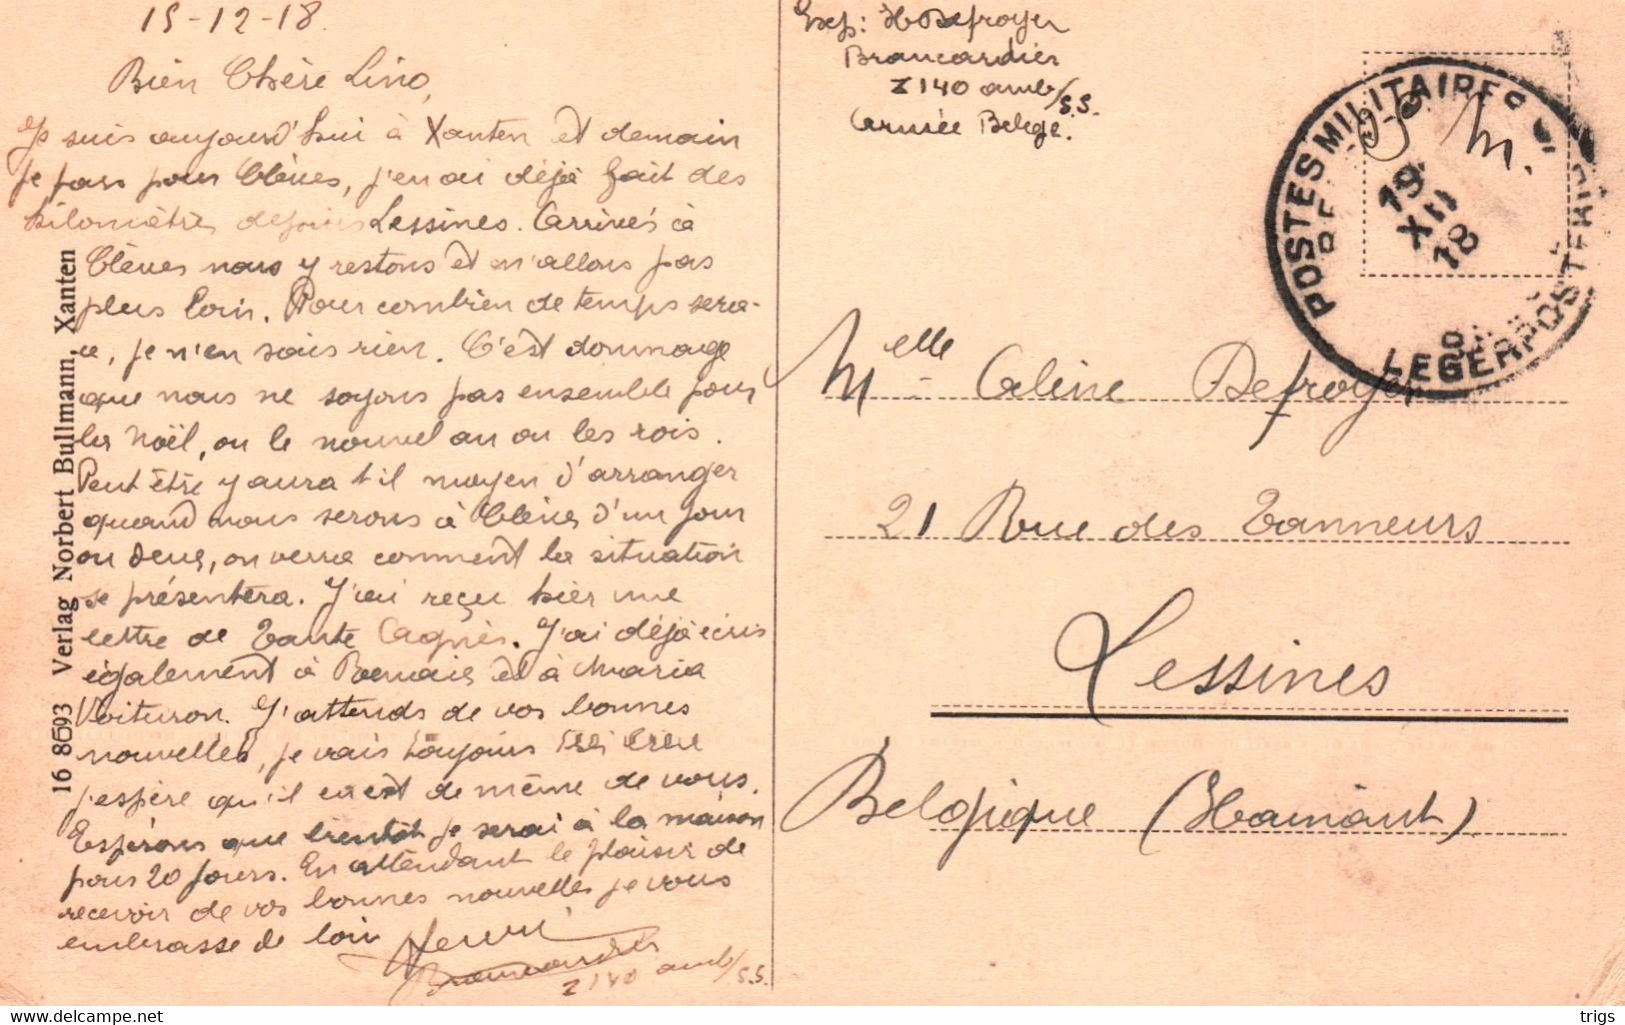 15-12-18.
Bien Chère Lino,
Je suis aujourd'hui à Xanten et demain
je pars pour Clèves, j'en ai déjà fait des
kilomètres depuis Lessines. Arrivés à
Clèves nous y restons et n'allons pas
plus loin. Pour combien de temps sera-
ce, je n'en sais rien. C'est dommage
que nous ne soyons pas ensemble pour
la Noël, ou le nouvel an ou les rois.
Peut être y aura t il moyen d'arranger
quand nous serons à Clèves d'un jour
ou deux, on verra comment la situation
se présentera. J'ai reçu hier une
lettre de Tante Agnès. J'ai déjà écris
également à Renaix et à Maria
Voituron. J'attends de vos bonnes
nouvelles, je vais toujours très bien
j'espère qu'il en est de même de vous.
Espérons que bientôt je serai à la maison
pour 20 jours. En attendant le plaisir de
recevoir de vos bonnes nouvelles je vous
embrasse de loin Henri
Brancardier
Z 140 amb/S.S.
16 8593 Verlag Norbert Bullmann, Xanten
Exp: H Defroyer
Brancardier
Z 140 amb/S.S.
Armée Belge.
S. M.
POSTES MILITAIRES
19
XII
18
LEGERPOSTERIJ
Melle Aline Defroyer
21 Rue des Tanneurs
Lessines
Belgique (Hainaut)
© Delcampe.net
trigs